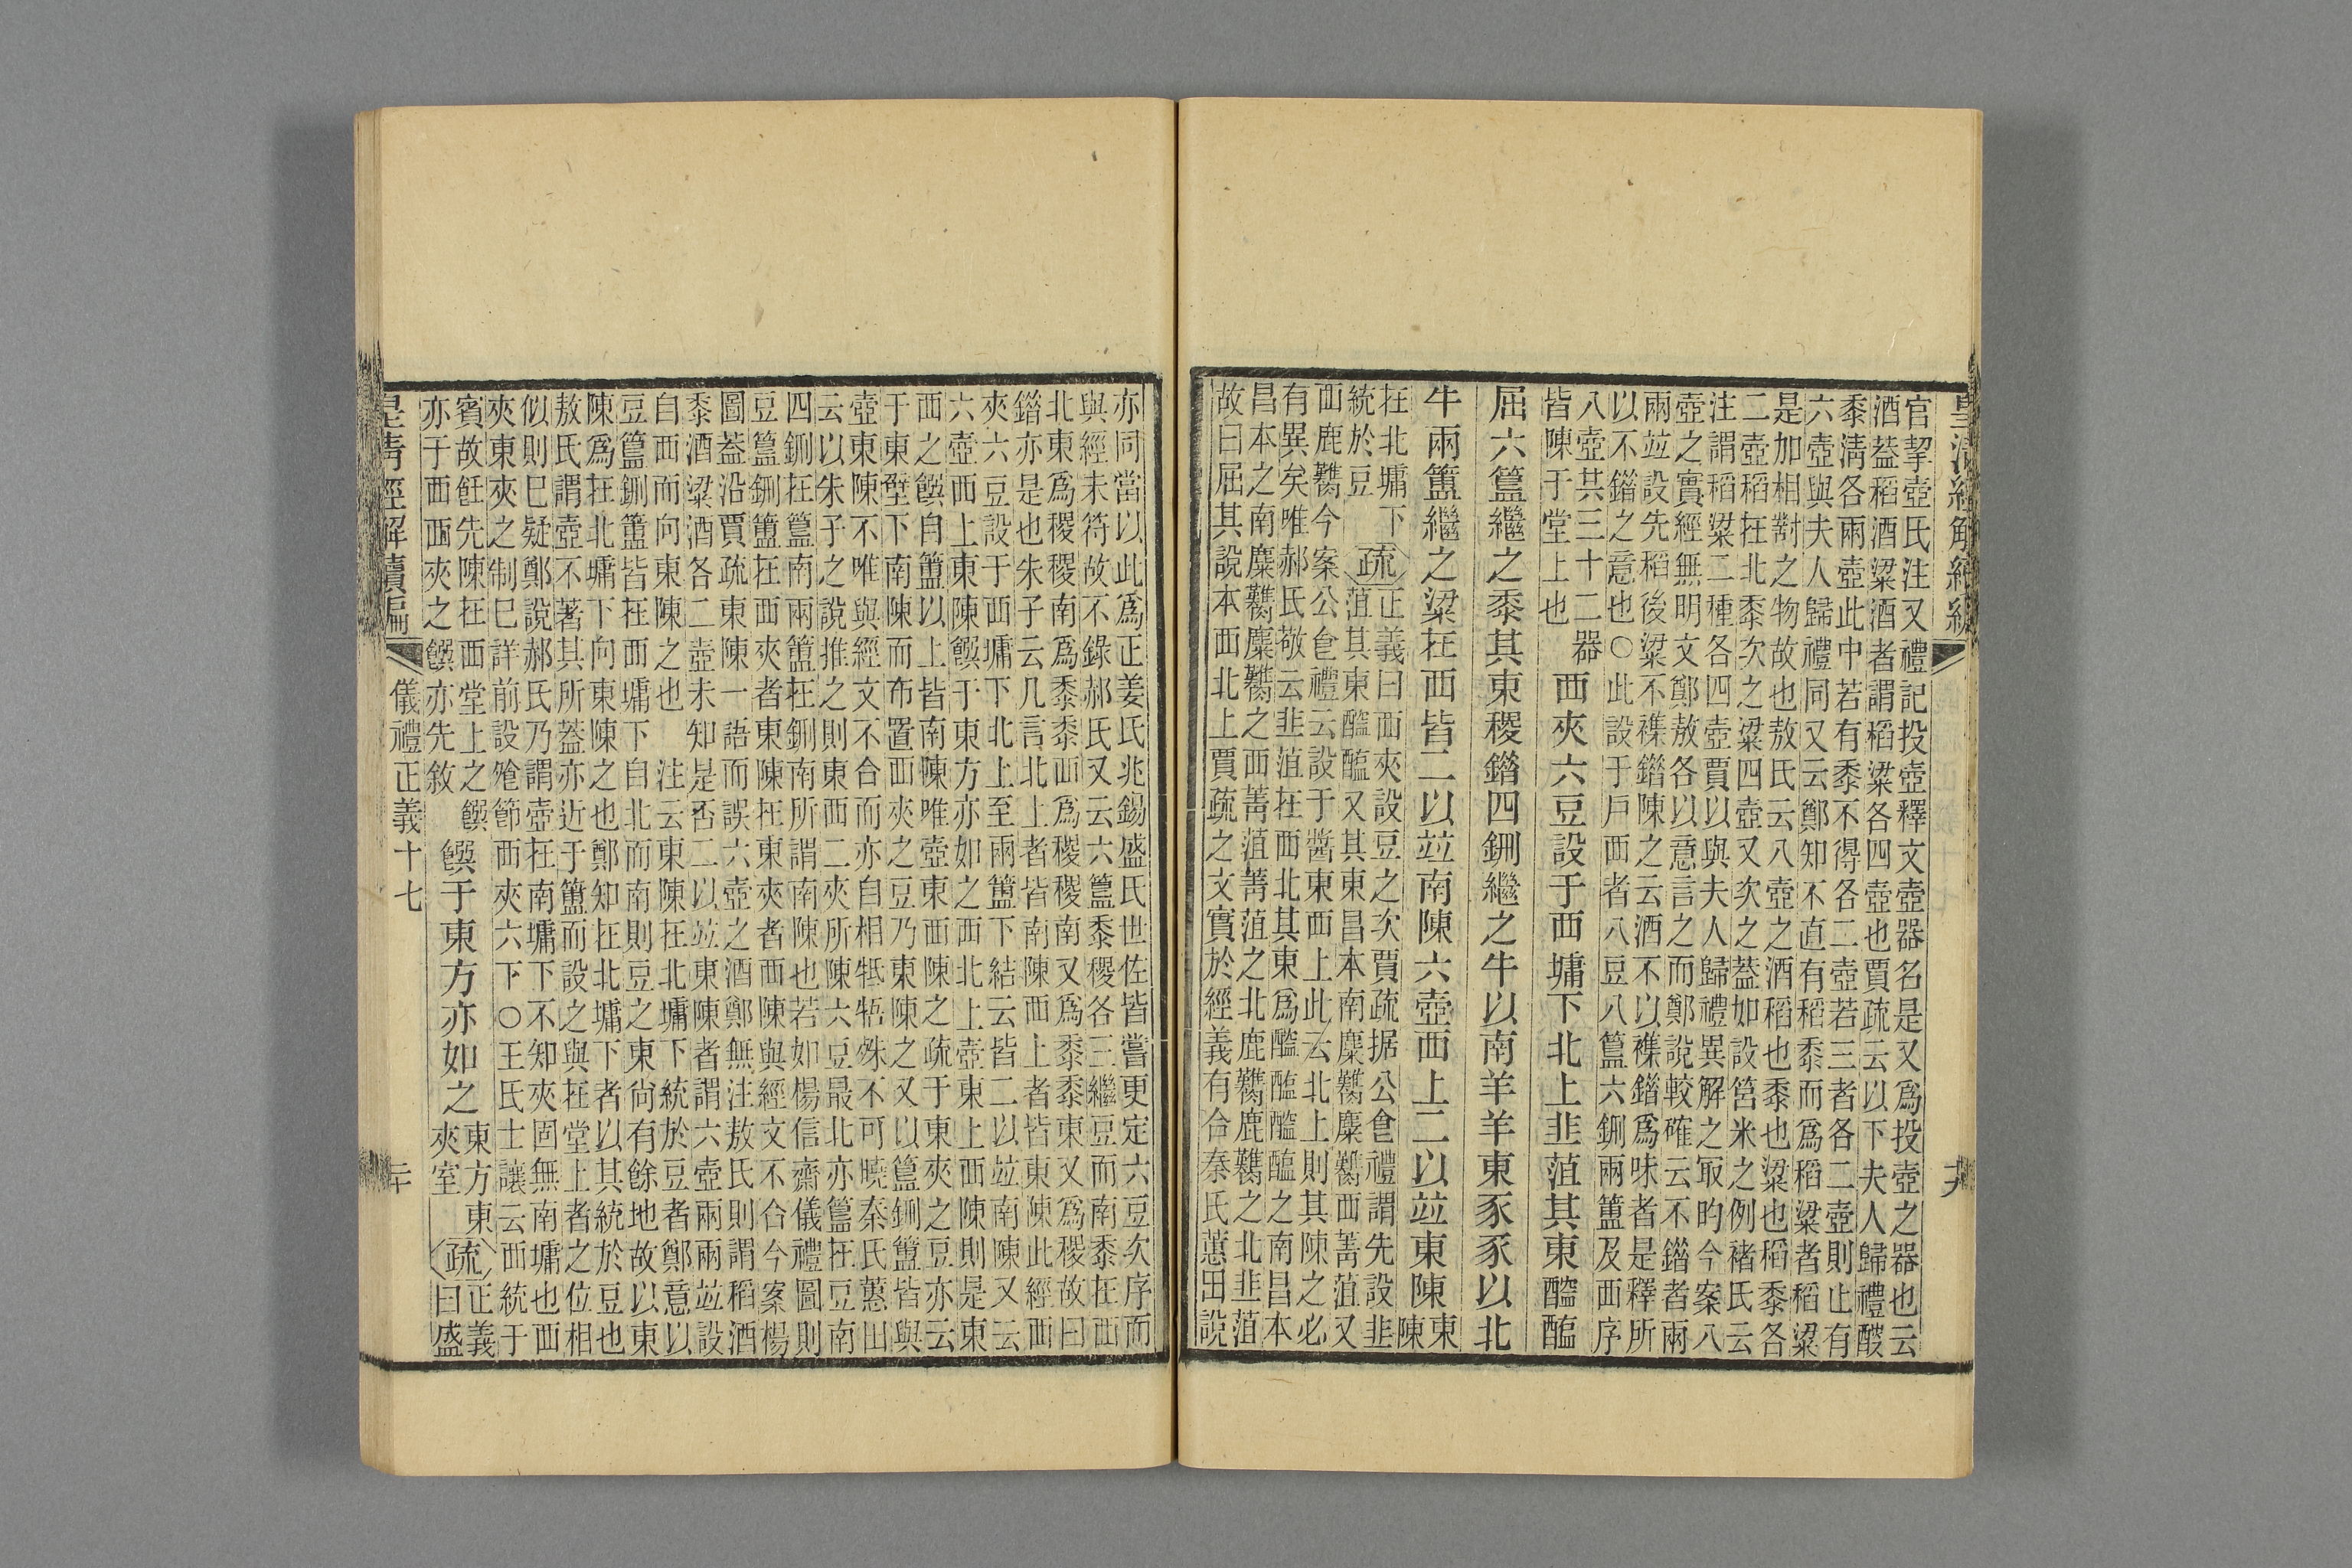 皇清經解續編
官挈壺氏注又禮記投壺釋文壺器名是又爲投壺之器也云
酒葢稻酒粱酒者謂稻粱各四壺也賈疏云以下夫人歸禮酸
黍淸各兩壺此中若有黍不得各二壺若三者各二壺則止有
六壺與夫人歸禮同又云鄭知不直有稻黍而爲稻粱者稻粱
是加相對之物故也敖氏云八壺之酒稻也黍也粱也稻黍各
二壺稻在北黍次之粱四壺又次之葢如設筥米之例褚氏云
注謂稻粱二種各四壺賈以與夫人歸禮異解之㝡昀今案八
壺之實經無明文鄭敖各以意言之而鄭說較確云不錯者兩
兩竝設先稻後粱不襍錯陳之云酒不以襍錯爲味者是釋所
以不錯之意也○此設于戶西者八豆八簋六鉶兩簠及西序
八壺其三十二器
皆陳于堂上也
西夾六豆設于西墉下北上韭菹其東醓醢
屈六簋繼之黍其東稷錯四鉶繼之牛以南羊羊東豕豕以北
牛兩簠繼之粱在西皆二以竝南陳六壺西上二以竝東陳東陳
在北墉下
統於豆
疏正義曰西夾設豆之次賈疏据公食禮謂先設韭
菹其東醓醢又其東昌本南麋臡麋臡西菁菹又
西鹿臡今案公食禮云設于醬東西上此云北上則其陳之必
有異矣唯郝氏敬云韭菹在西北其東爲醓醢醓醢之南昌本
昌本之南麋臡麋臡之西菁菹菁菹之北鹿臡鹿臡之北韭菹
故曰屈其說本西北上賈疏之文實於經義有合秦氏蕙田說
亦同當以此爲正姜氏兆錫盛氏世佐皆嘗更定六豆次序而
與經未符故不錄郝氏又云六簋黍稷各三繼豆而南黍在西
北東爲稷稷南爲黍黍西爲稷稷南又爲黍黍東又爲稷故曰
錯亦是也朱子云凡言北上者皆南陳西上者皆東陳此經西
夾六豆設于西墉下北上至兩簠下結云皆二以竝南陳又云
六壺西上東陳饌于東方亦如之西北上壺東上西陳則是東
西之饌自簠以上皆南陳唯壺東西陳之疏于東夾之豆亦云
于東壁下南陳而布置西夾之豆乃東陳之又以簋鉶簠皆與
壺東陳不唯與經文不合而亦自相牴牾殊不可曉秦氏蕙田
云以朱子之說推之則東西二夾所陳六豆最北亦簋在豆南
四鉶在簋南兩簠在鉶南所謂南陳也若如楊信齋儀禮圖則
豆簋鉶簠在西夾者東陳在東夾者西陳與經文不合今案楊
圖葢沿賈疏東陳一語而誤六壺之酒鄭無注敖氏則謂稻酒
黍酒粱酒各二壺未知是否二以竝東陳者謂六壺兩兩竝設
自西而向東陳之也　注云東陳在北墉下統於豆者鄭意以
豆簋鉶簠皆在西墉下自北而南則豆之東尙有餘地故以東
陳爲在北墉下向東陳之也鄭知在北墉下者以其統於豆也
敖氏謂壺不著其所葢亦近于簠而設之與在堂上者之位相
似則已疑鄭說郝氏乃謂壺在南墉下不知夾固無南墉也西
夾東夾之制已詳前設飧節西夾六下○王氏士讓云西統于
賓故飪先陳在西堂上之饌
亦于西西夾之饌亦先敘
饌于東方亦如之東方東
夾室
疏正義
曰盛
皇清經解續編　儀禮正義十七